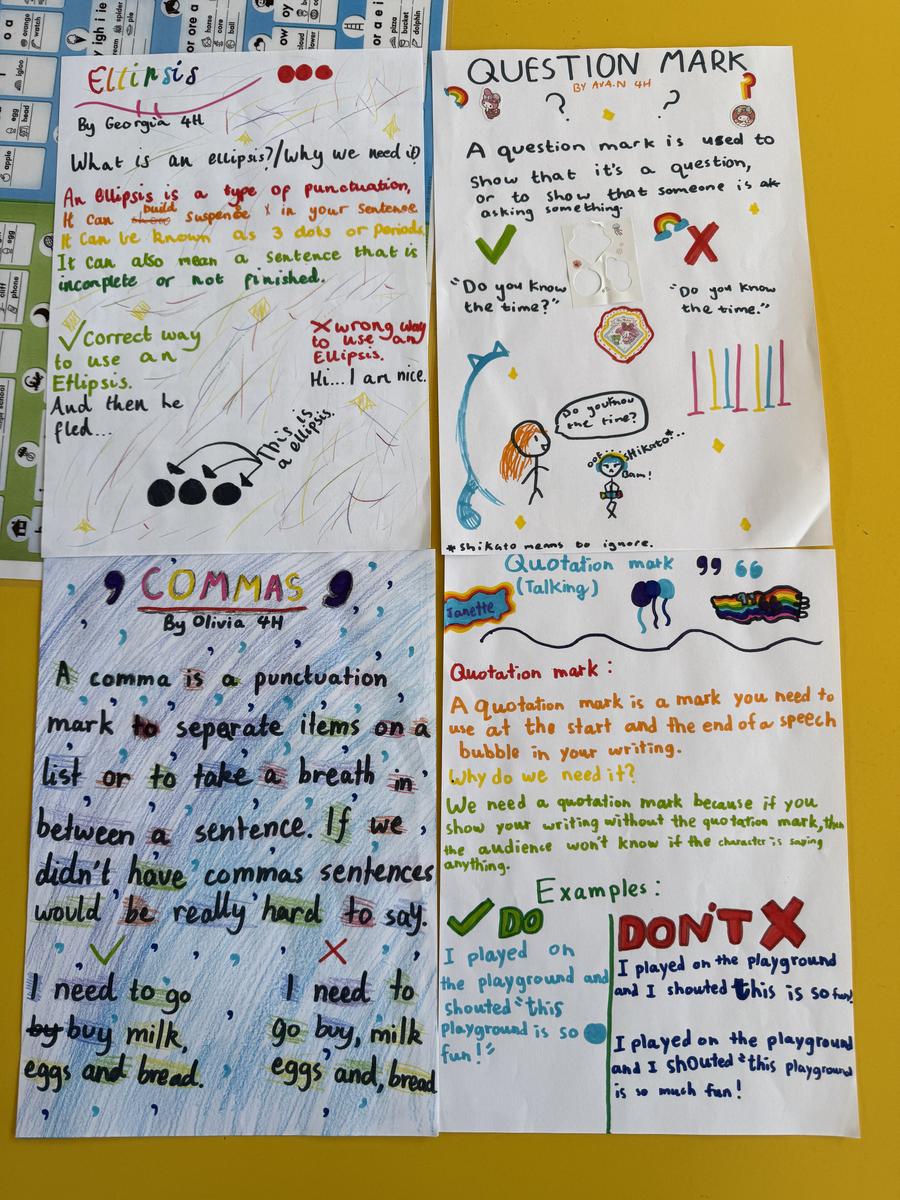 Ellipsis
By Georgia 4H
What is an ellipsis?/Why we need it
An Ellipsis is a type of punctuation,
It can build suspense in your sentence
It can be known as 3 dots or periods
It can also mean a sentence that is
incomplete or not finished.
✓Correct way
to use an
Ellipsis.
And then he
fled...
✗wrong way
to use an
Ellipsis.
Hi...I am nice.
This is
a ellipsis.
QUESTION MARK
BY AVA.N 4H
? ? ?
A question mark is used to
show that it's a question,
or to show that someone is
asking something.
✓ ✗
"Do you know
the time?"
"Do you know
the time."
Do you know
the time?
oof...
SHikato*...
Bam!
*Shikato means to ignore.
, COMMAS ,
By Olivia 4H
A comma is a punctuation
mark to separate items on a
list or to take a breath in
between a sentence. If we
didn't have commas sentences
would be really hard to say.
✓ ✗
I need to go
by buy milk,
eggs and bread.
I need to
go buy, milk
eggs and, bread
Quotation mark ,, “
(Talking)
Janette
Quotation mark:
A quotation mark is a mark you need to
use at the start and the end of a speech
bubble in your writing.
Why do we need it?
We need a quotation mark because if you
show your writing without the quotation mark, then
the audience won't know if the character is saying
anything.
Examples:
✓ DO
I played on
the playground and
shouted “this
playground is so
fun!”
DON'T ✗
I played on the playground
and I shouted this is so fun!
I played on the playground
and I shouted “this playground
is so much fun!
orange
watch
igloo
egg
head
apple
spider
home
core
ball
oy
ow
pizza
bucket
dolphin
egg
phone
school